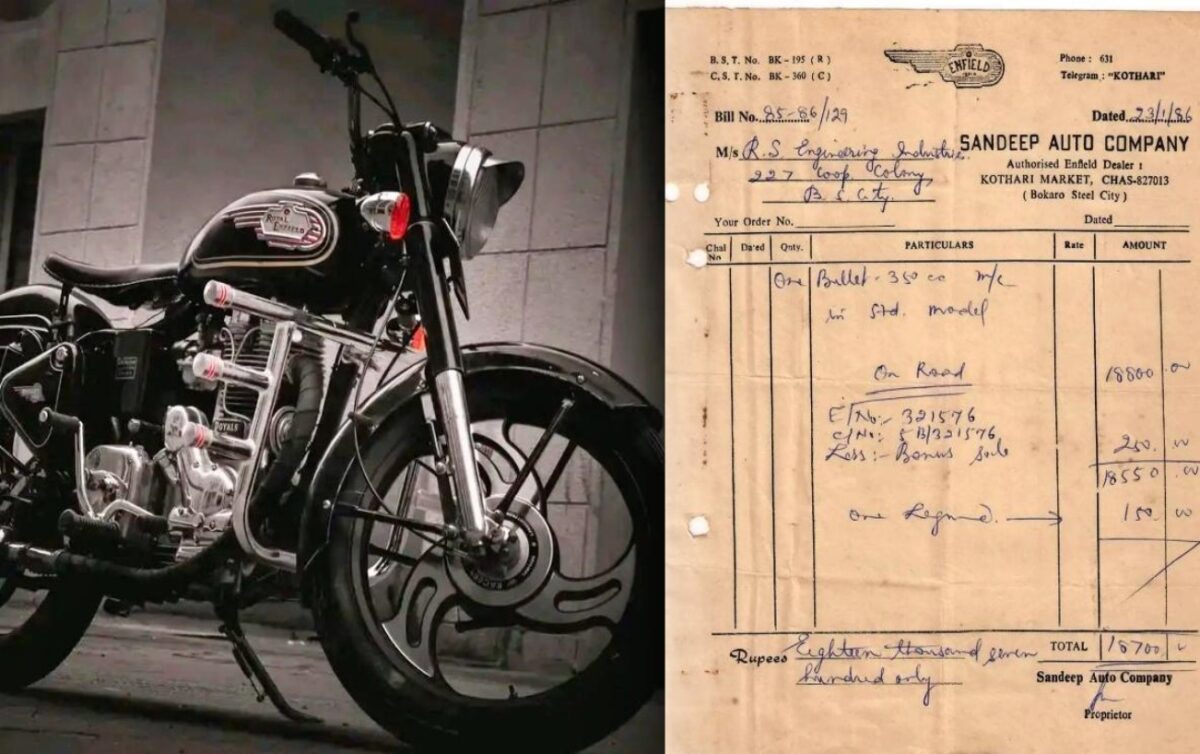 ROYAL
ENFIELD
ROYALS
B. S. T. No. BK - 195 ( R )
C. S. T. No. BK - 360 ( C )
ENFIELD
INDIA
Phone : 631
Telegram : "KOTHARI"
Bill No. 85-86/129
Dated 23/1/86
M/s R.S. Engineering Industries.
227 Coop. Colony,
B. S. City.
SANDEEP AUTO COMPANY
Authorised Enfield Dealer :
KOTHARI MARKET, CHAS-827013
( Bokaro Steel City )
Your Order No.
Dated
Chal No Dated Qnty. PARTICULARS Rate AMOUNT
One Bullet - 350 cc m/c
in Std. model
On Road 18800 .00
E/No:- 321576
C/No:- 5B/321576
Less:- Bonus Sale 250. 00
18550 .00
One Legurd. → 150. 00
Rupees Eighteen thousand seven
hundred only
TOTAL 18700
Sandeep Auto Company
Proprietor